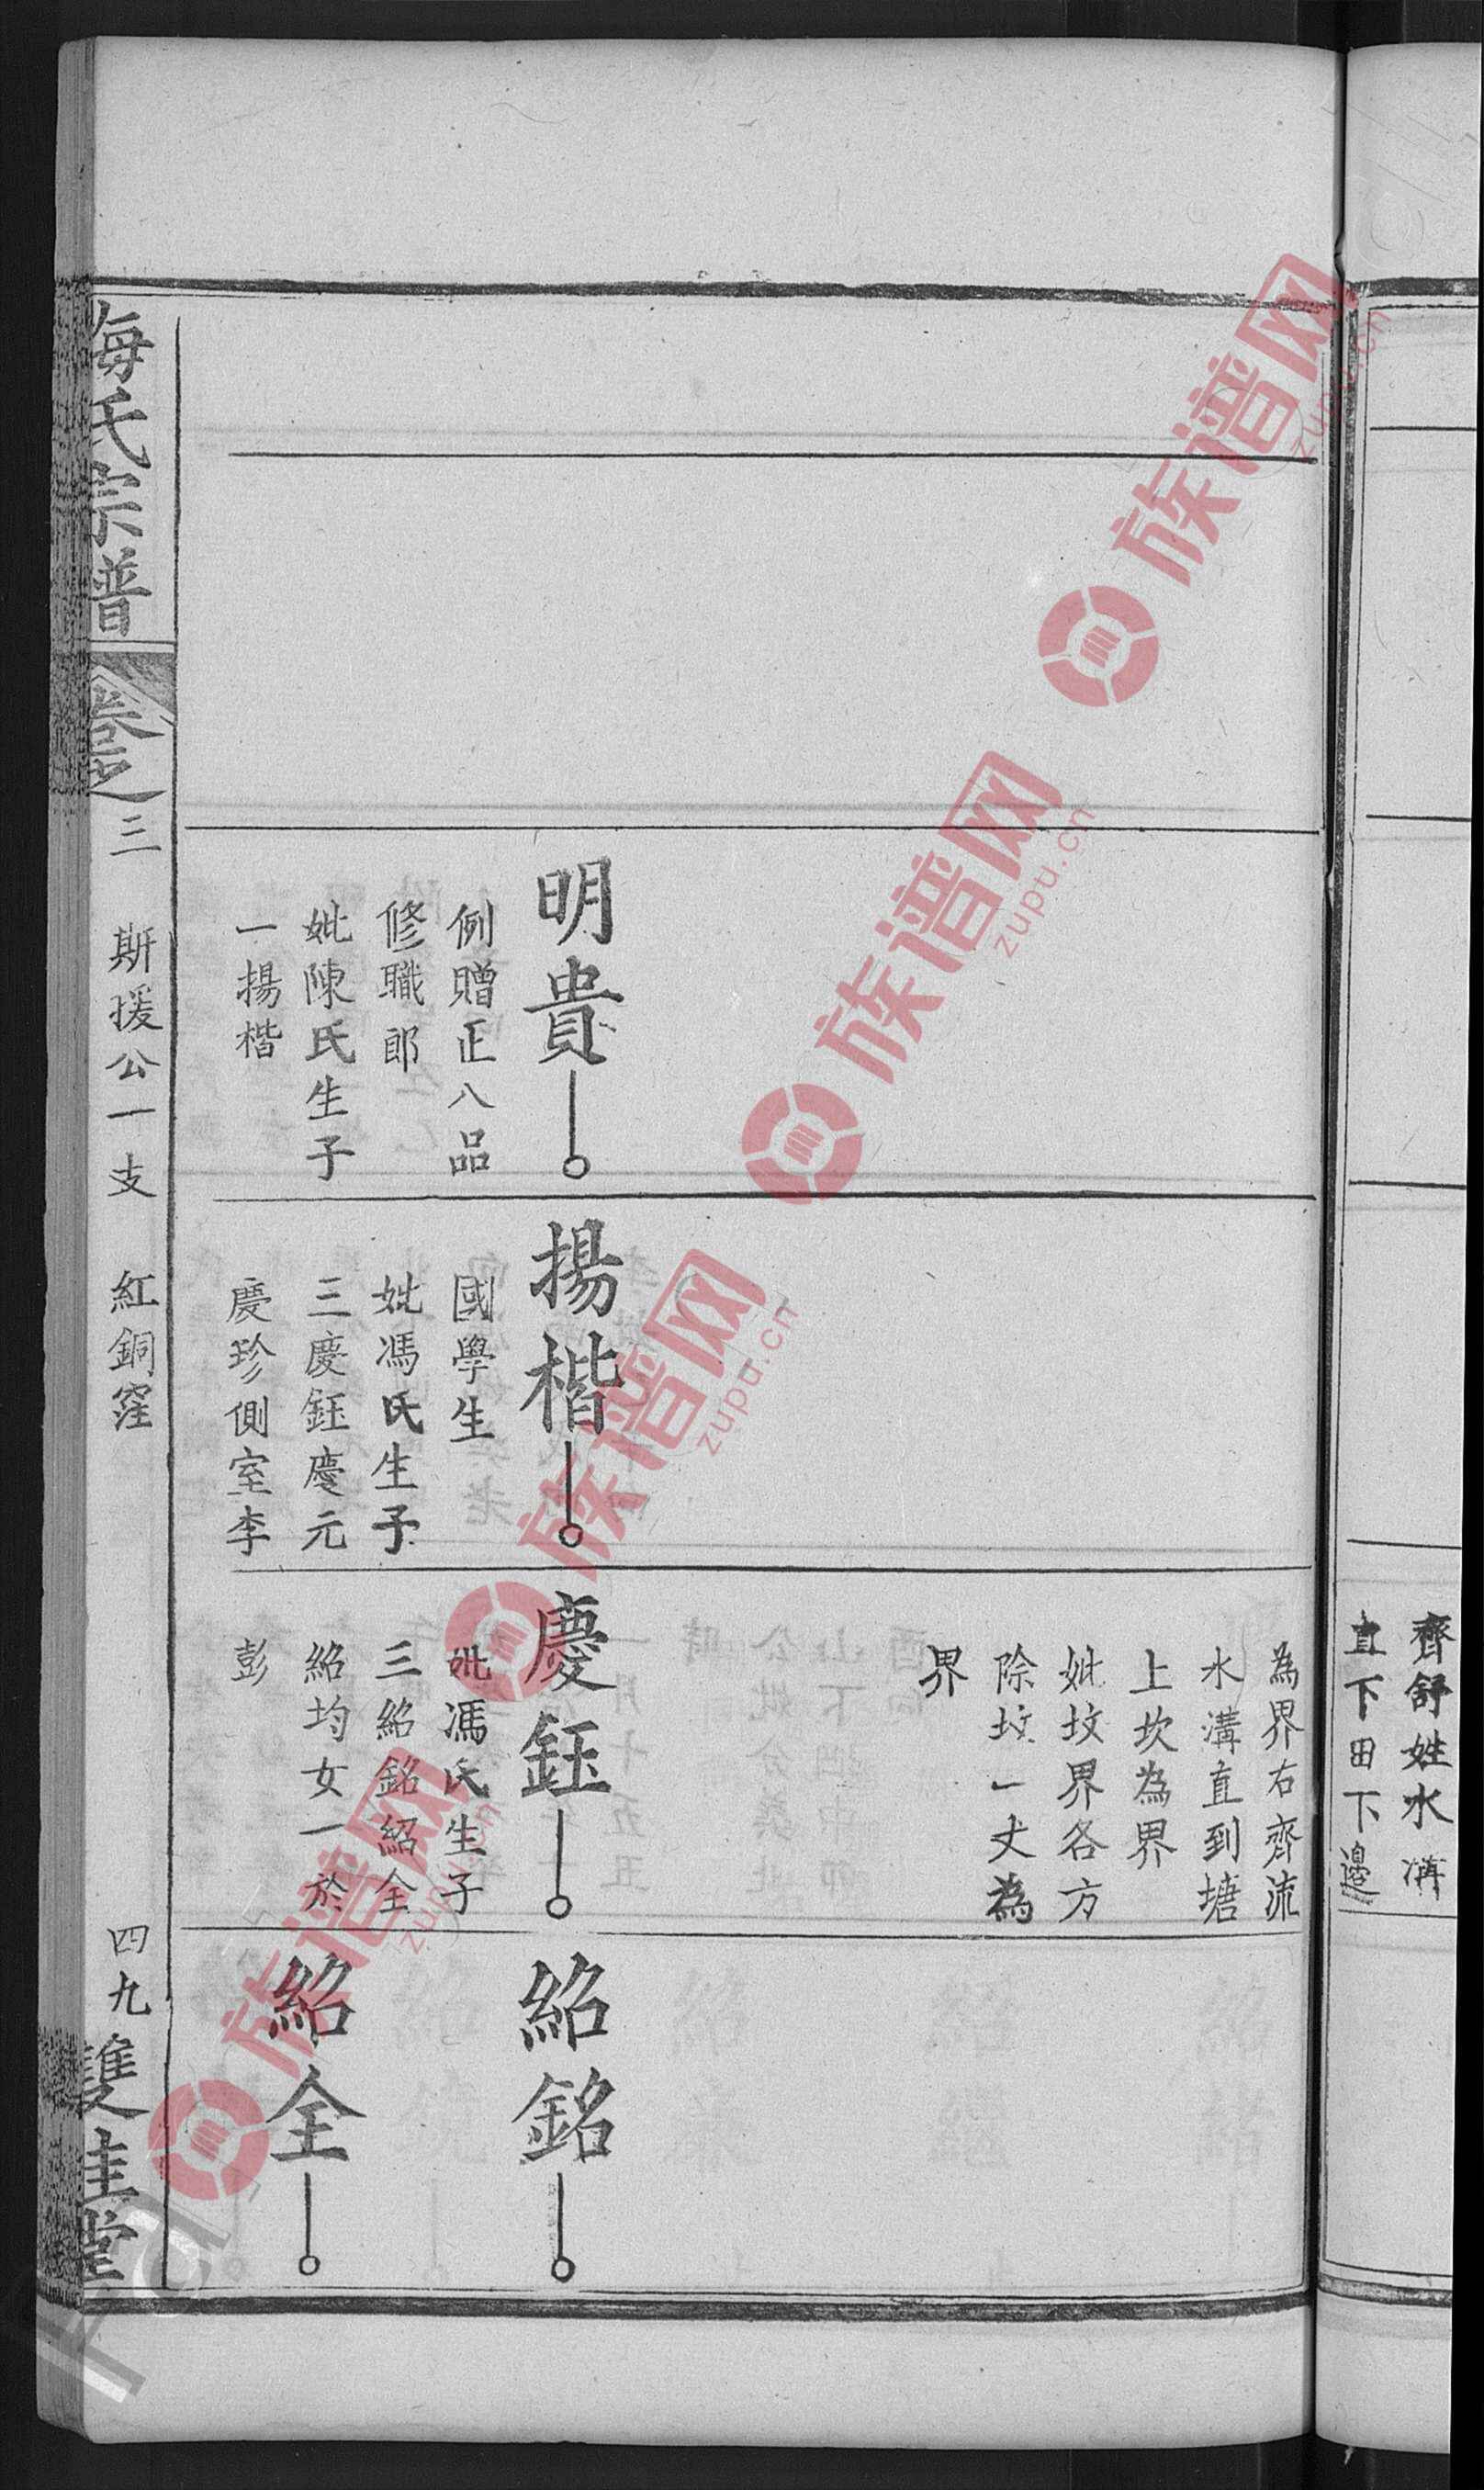 齊舒姓水溝
直下田下邊
為界右齊流
水溝直到塘
上坎為界
妣坟界各方
除坟一丈為
界
明貴
例贈正八品
修職郎
妣陳氏生子
一揚楷
揚楷
國學生
妣馮氏生子
三慶鈺慶元
慶珍側室李
慶鈺
妣馮氏生子
三紹銘紹全
紹均女一於
彭
紹銘
紹全
氏宗譜
卷之三
斯援公一支
紅銅窪
四九
雙桂堂
族谱网
zupu.cn
族谱网
zupu.cn
族谱网
zupu.cn
族谱网
zupu.cn